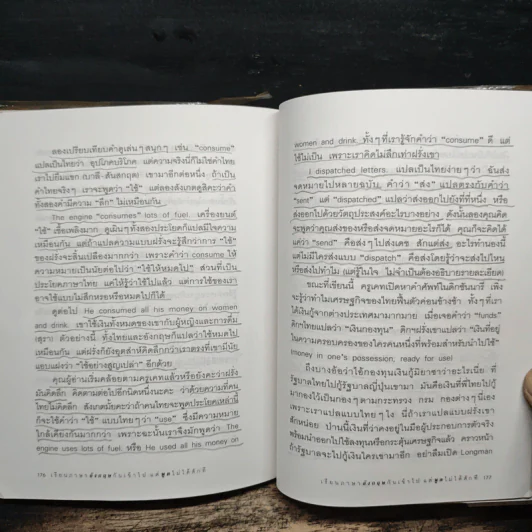 ลองเปรียบเทียบคำดูเล่นๆ สนุกๆ เช่น "consume"
แปลเป็นไทยว่า อุปโภคบริโภค แต่ความจริงนี่ก็ไม่ใช่คำไทย
เราไปยืมแขก (บาลี-สันสกฤต) เขามาอีกต่อหนึ่ง ถ้าเป็น
คำไทยจริงๆ เราจะพูดว่า "ใช้" แต่ลองสังเกตดูสิคะว่าคำ
ทั้งสองคำมีความ "ลึก" ไม่เหมือนกัน
The engine "consumes" lots of fuel. เครื่องยนต์
"ใช้" เชื้อเพลิงมาก ดูเผินๆ ทั้งสองประโยคก็แปลมีใจความ
เหมือนกัน แต่ถ้าแปลความแบบฝรั่งจะรู้สึกว่าการ "ใช้"
ของฝรั่งจะสิ้นเปลืองมากกว่า เพราะคำว่า consume ให้
ความหมายเป็นนัยต่อไปว่า "ใช้ให้หมดไป" ส่วนที่เป็น
ประโยคภาษาไทย แค่ให้รู้ว่าใช้ไปแล้ว แต่การใช้ของเรา
อาจใช้แบบไม่สึกหรอหรือหมดไปก็ได้
ดูต่อไป He consumed all his money on women
and drink. เขาใช้เงินทั้งหมดของเขากับผู้หญิงและการดื่ม
(สุรา) ตัวอย่างนี้ ทั้งไทยและอังกฤษก็แปลว่าใช้หมดไป
เหมือนกัน แต่ฝรั่งก็ยังพูดส่าห์คิดลึกกว่าเราตรงที่เขามีนัย
แอบแฝงว่า "ใช้อย่างสูญเปล่า" อีกด้วย
คุณผู้อ่านเริ่มคล้อยตามครูเคทแล้วหรือยังคะว่าฝรั่ง
มันคิดลึก คิดตามต่อไปอีกนิดหนึ่งนะคะ ว่าด้วยความที่คน
ไทยไม่คิดลึก สังเกตมั้ยคะว่าถ้าคนไทยจะพูดประโยคเหล่านี้
ก็จะใช้คำว่า "ใช้" แบบไทยๆ ว่า "use" ซึ่งมีความหมาย
ใกล้เคียงกันมากกว่า เพราะฉะนั้นเราจึงมักพูดว่า The
engine uses lots of fuel. หรือ He used all his money on
176 เรียนภาษาอังกฤษกันเข้าไป แต่พูดไม่ได้สักที
women and drink. ทั้งๆ ที่เรารู้จักคำว่า "consume" ดี แต่
ใช้ไม่เป็น เพราะเราคิดไม่ลึกเท่าฝรั่งเขา
I dispatched letters. แปลเป็นไทยง่ายๆ ว่า ฉันส่ง
จดหมายไปหลายฉบับ คำว่า "ส่ง" แปลตรงกับคำว่า
"sent" แต่ "dispatched" แปลว่าส่งออกไปถึงที่ที่หนึ่ง หรือ
ส่งออกไปด้วยวัตถุประสงค์อะไรบางอย่าง ดังนั้นลองคุณคิด
จะพูดว่าคุณส่งของหรือส่งจดหมายอะไรก็ได้ คุณก็จะคิดได้
แค่ว่า "send" คือส่งๆ ไปส่งเดช สักแต่ส่ง อะไรทำนองนี้
แต่ไม่มีใครส่งแบบ "dispatch" คือส่งโดยรู้ว่าจะส่งไปไหน
หรือส่งไปทำไม (แต่รู้ในใจ ไม่จำเป็นต้องอธิบายรายละเอียด)
ขณะที่เขียนนี้ ครูเคทเปิดหาคำศัพท์ในดิกชันนารี เพิ่ง
จะรู้ว่าทำไมเศรษฐกิจของไทยฟื้นตัวค่อนข้างช้า ทั้งๆ ที่เรา
ได้เงินกู้จากต่างประเทศมามากมาย เมื่อเจอคำว่า "funds"
ดิกฯ ไทยแปลว่า "เงินกองทุน" ดิกฯ ฝรั่งเขาแปลว่า "เงินที่อยู่
ในความครอบครองของใครคนหนึ่งที่พร้อมสำหรับการนำไปใช้"
(money in one's possession, ready for use)
ถึงบางอ้อว่าไอ้กองทุนเงินกู้มิยาซาว่าอะไรเนี่ย ที่
รัฐบาลไทยไปกู้รัฐบาลญี่ปุ่นเขามา มันคือเงินที่พี่ไทยไปกู้
มากองไว้เป็นกองๆ ตามกระทรวง กรม กองต่างๆ นี่เอง
เพราะเราแปลแบบไทยๆ ไง นี่ถ้าเราแปลแบบฝรั่งเขา
สักหน่อย ป่านนี้เงินที่ว่าคงอยู่ในมือผู้ประกอบการตัวจริง
พร้อมนำออกไปใช้ลงทุนหรือกระตุ้นเศรษฐกิจแล้ว คราวหน้า
ถ้ารัฐบาลจะไปกู้เงินใครเขามาอีก อย่าลืมเปิด Longman
เรียนภาษาอังกฤษกันเข้าไป แต่พูดไม่ได้สักที 177